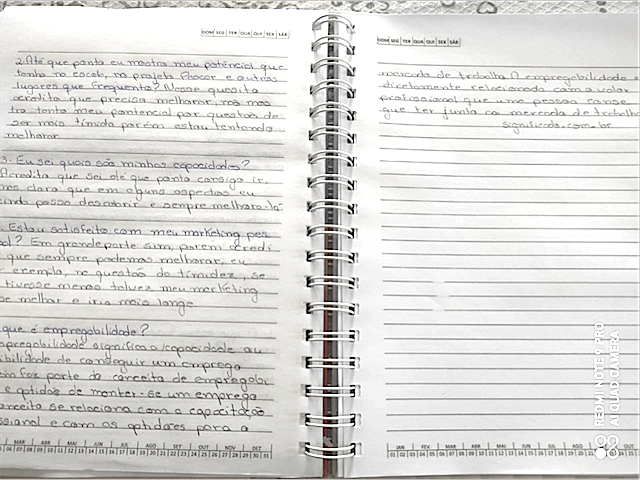 DOM SEG TER QUA QUI SEX SÁB
2. Até que ponto eu mostro meu potêncial que
tenho no escola, na projeto Pescar e outros
lugares que frequento? Nesse quesito
acredito que preciso melhorar, não mos
tro tanto meu pontencial por questões de
ser mais tímida porém estou tentando
melhorar
3 - Eu sei quais são minhas capacidades?
Acredito que sei até que ponto consigo ir,
mas claro que em alguns aspectos eu
ainda posso descobrir e sempre melhorá-la
Estou satisfeito com meu marketing pes
oal? Em grande parte sim, porém acredi
que sempre podemos melhorar, eu
exemplo, na questão da timidez, se
tivesse menos talvez meu marketing
se melhor e iria mais longe
que é empregabilidade?
mpregabilidade significa a capacidade ou
ibilidade de conseguir um emprego
em faz parte do conceito de empregabi
e aptidões de manter-se um emprego
onceito se relaciona com a capacitação
ssional e com as aptidões para o
MAR ABR MAI JUN JUL AGO SET OUT NOV DEZ
DOM SEG TER QUA QUI SEX SÁB
mercado de trabalho. A empregabilidade
diretamente relacionada com a valor
profissional que uma pessoa conse
que ter junto ao mercado de trabalho
significado.com.br
JAN FEV MAR ABR MAI JUN JUL AGO SET OUT
REDMI NOTE 9 PRO
AI QUAD CAMERA